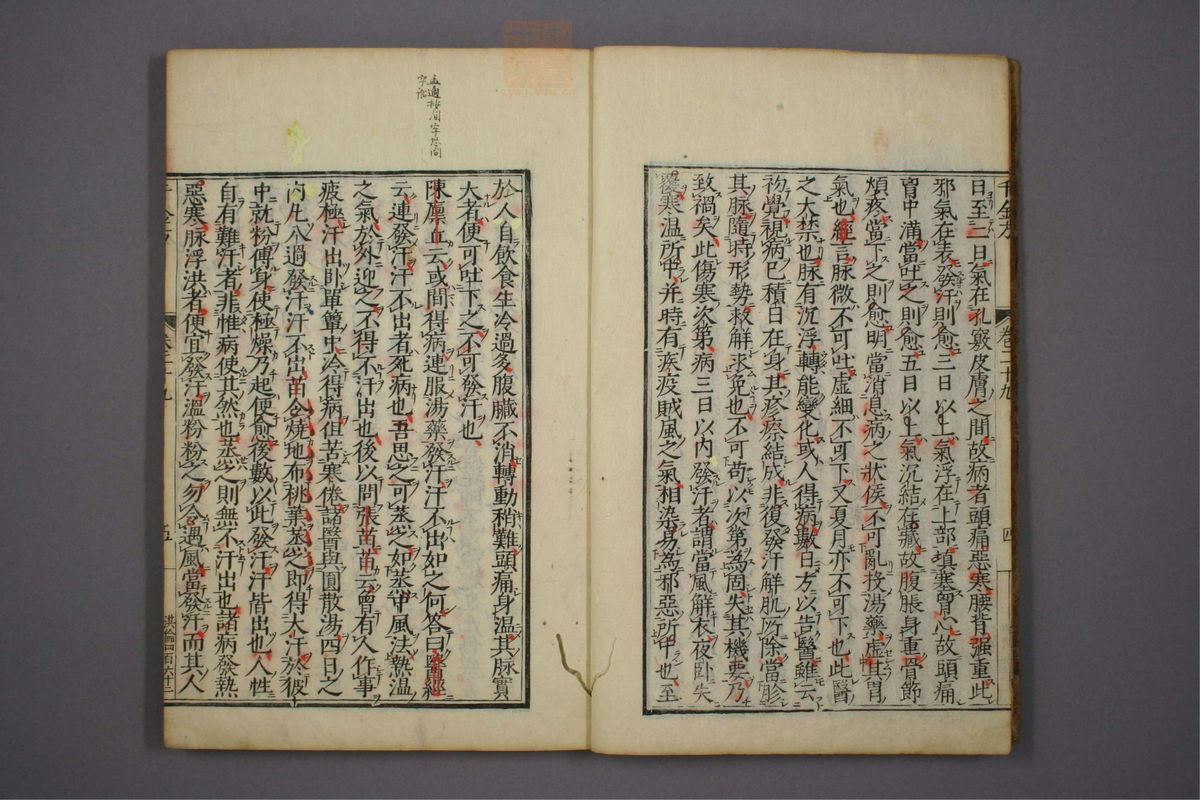 日至二日氣在孔竅皮膚之間故病者頭痛惡寒腰背强重此
邪氣在表發汗則愈三日以上氣浮在上部填塞胷心故頭痛
胷中滿當吐之則愈五日以上氣沉結在臓故腹脹身重骨節
煩疼當下之則愈明當消息病之狀候不可亂投湯藥虛其胃
氣也經言脉微不可吐虛細不可下又夏月亦不可下也此醫
之大禁也脉有沉浮轉能變化或人得病數日方以告醫雖云
初覺視病已積日在身其疹瘵結成非復發汗解肌所除當診
其脉隨時形勢救解求免也不可苟以次第為固失其機要乃
致禍矣此傷寒次第病三日以内發汗者謂當風解衣夜卧失
覆寒温所中并時有疾疫賊風之氣相染易為邪惡所中也至
千金方
卷二十九
四
於人自飲食生冷過多腹臓不消轉動稍難頭痛身温其脉實
大者便可吐下之不可發汗也
陳廩丘云或問得病連服湯藥發汗汗不出如之何答曰醫經
云連發汗汗不出者死病也吾思之可蒸之如蒸中風法熱温
之氣於外迎之不得不汗出也後以問張苗苗云曾有人作事
疲極汗出卧單簟中冷得病但苦寒倦諸醫與圓散湯四日之
内凡八過發汗汗不出苗令燒地布桃葉蒸之即得大汗於被
中就粉傅身使極燥乃起便愈後數以此發汗汗皆出也人性
自有難汗者非惟病使其然也蒸之則無不汗出也諸病發熱
惡寒脉浮洪者便宜發汗溫粉粉之勿令過風當發汗而其人
五